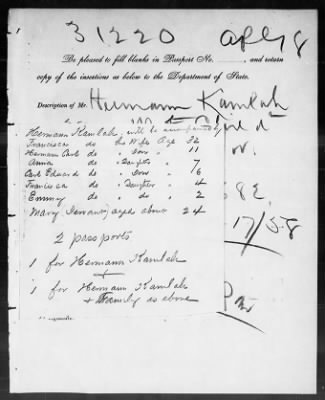 31220 Apl 18
Be pleased to fill blanks in Passport No. ......, and return
copy of the insertions as below to the Department of State.
Description of Mr. Hermann Kamlah
Hermann Kamlah, will be accompanied by
Francisca do his Wife Age 32
Hermann Carl do " Son " 11
Anna do " Daughter " 7
Carl Eduard do " Son " 6
Francisca do " Daughter " 4
Emmy do " do " 2
Mary (Servant) aged about 24
17/58
2 passports
1 for Hermann Kamlah
+
1 for Hermann Kamlah
+ Family as above